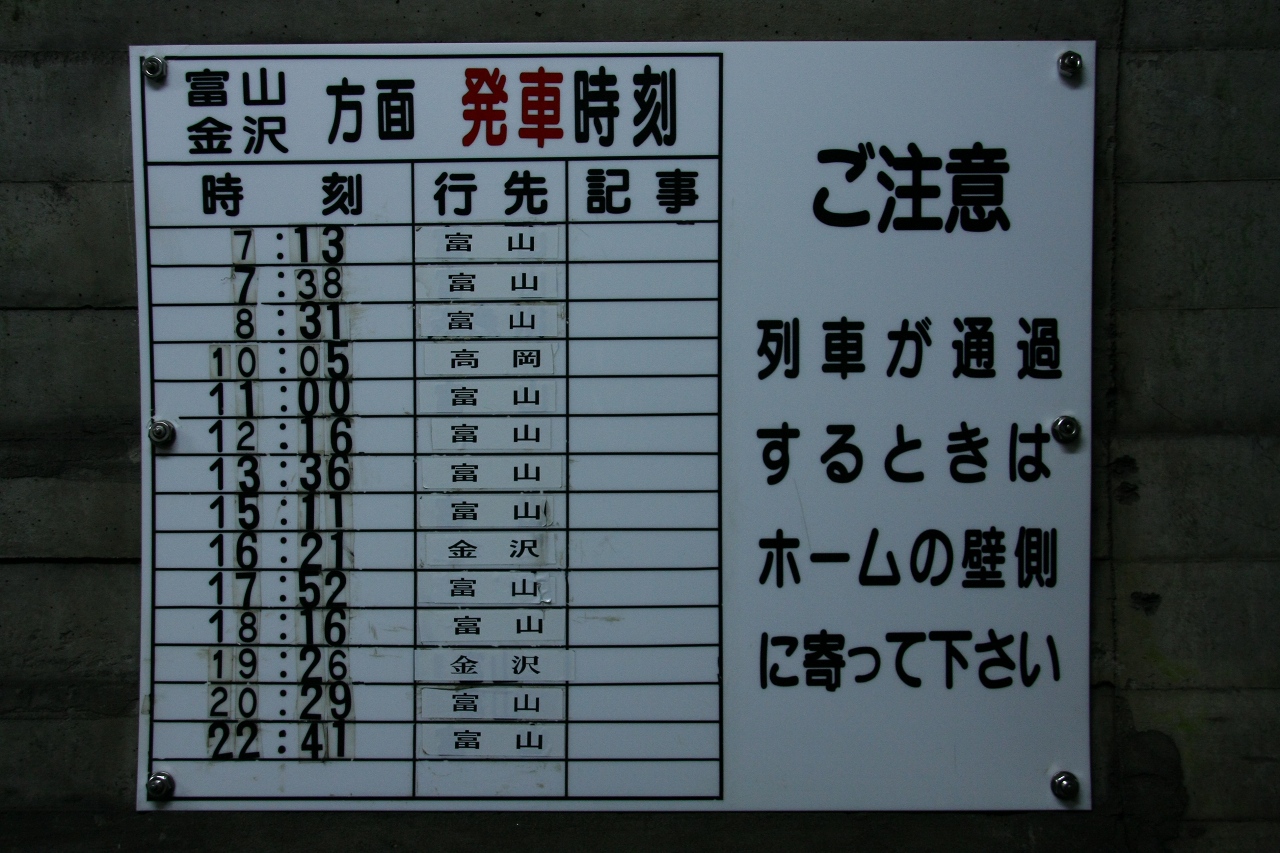 富山
金沢 方面 発車時刻
時刻 行先 記事
7:13 富山
7:38 富山
8:31 富山
10:05 高岡
11:00 富山
12:16 富山
13:36 富山
15:11 富山
16:21 金沢
17:52 富山
18:16 富山
19:26 金沢
20:29 富山
22:41 富山
ご注意
列車が通過
するときは
ホームの壁側
に寄って下さい